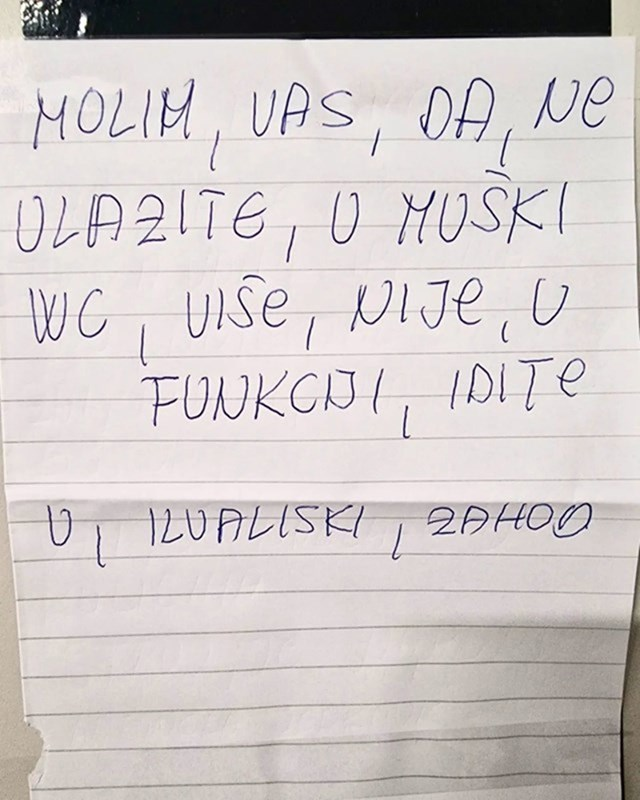 MOLIM, VAS, DA, NE
ULAZITE, U MUŠKI
WC, VIŠE, NIJE, U
FUNKCIJI, IDITE
U, ILVALISKI, ZAHOD